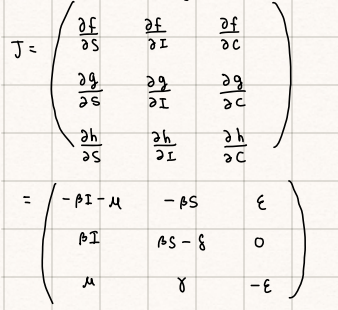 J = ( ∂f/∂S ∂f/∂I ∂f/∂C
∂g/∂S ∂g/∂I ∂g/∂C
∂h/∂S ∂h/∂I ∂h/∂C )
= ( -βI-μ -βS ε
βI βS-δ 0
μ γ -ε )